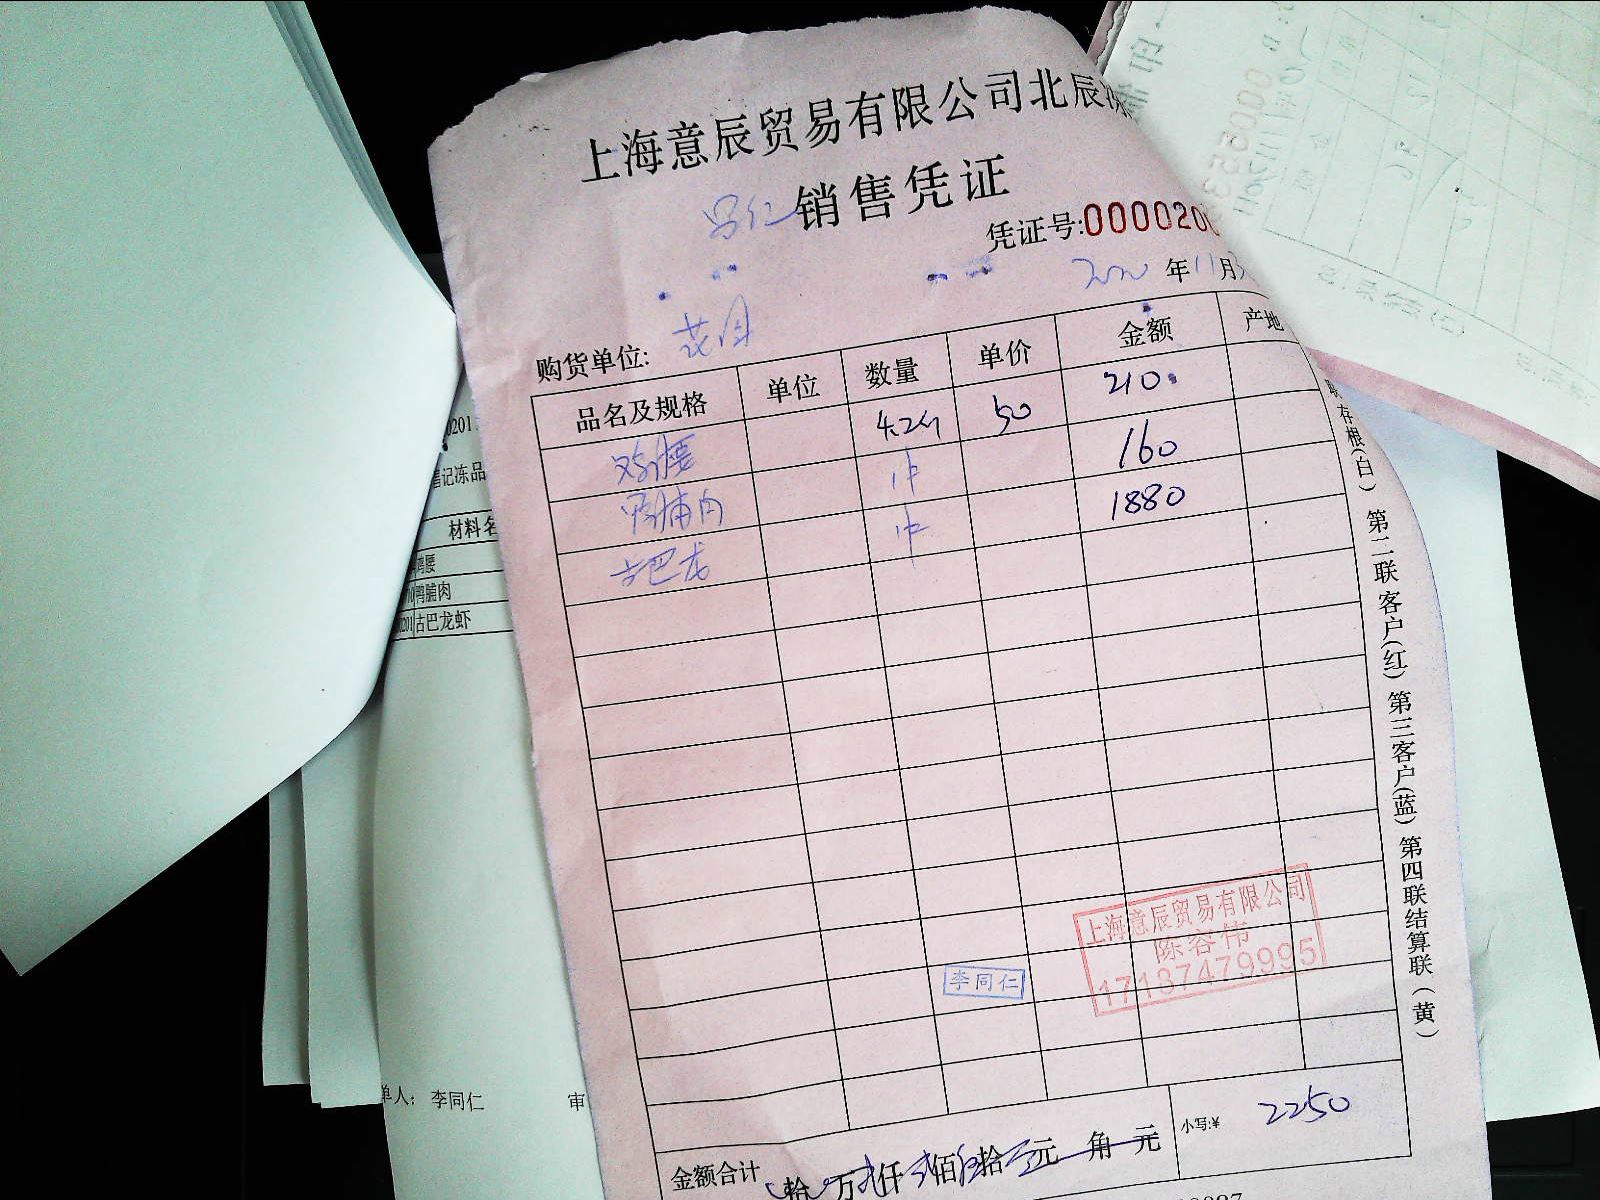 上海意辰贸易有限公司北辰
销售凭证
凭证号:0000200
2020年11月
购货单位: 花月
品名及规格 单位 数量 单价 金额 产地
鸡腰 4.2斤 50 210
鸭脯肉 1件 160
古巴龙 1件 1880
上海意辰贸易有限公司
陈容伟
17187479995
李同仁
金额合计 拾 万 仟 佰 拾 元 角 元
小写:¥ 2250
存根(白) 第二联客户(红) 第三客户(蓝) 第四联结算联(黄)
0201
记冻品
材料名
鸭腰
鸭脯肉
201 古巴龙虾
单人: 李同仁 审